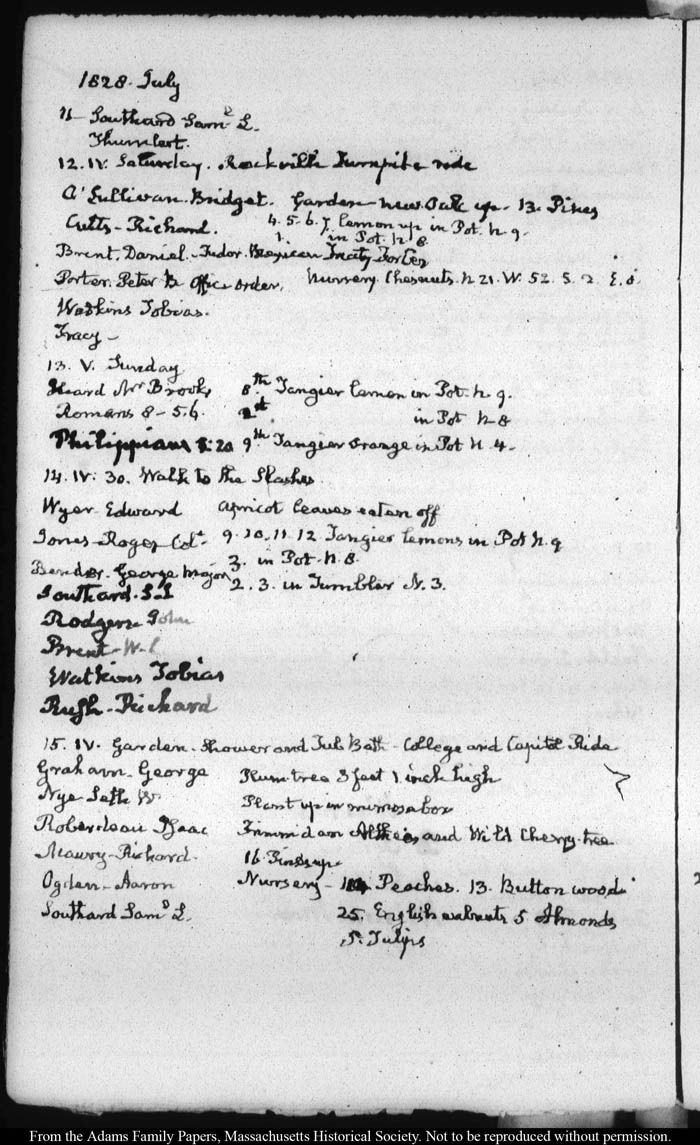 1828. July
11 - Southard Saml L.
Thumlert.
12. IV. Saturday. Rockville Turnpike ride
O'Sullivan Bridget. Garden - new Oak up - 13. Pines
Cutts - Richard. 4. 5. 6. 7. lemon up in Pot. N 9.
1. in Pot. N 8.
Brent. Daniel - Tudor. Mexican Treaty Porter
Porter. Peter B Office order. Nursery Chesnuts. N 21. W. 52. S. 2. E. 6.
Watkins Tobias.
Tracy -
13. V. Sunday
Heard Mr Brooks 8th Tangier lemon in Pot. N 9.
Romans 8 - 5.6. 2d in Pot N 8
Philippians 3:20 9th Tangier orange in Pot N 4 -
14. IV: 30. Walk to the Slashes
Wyer Edward apricot leaves eaten off
Jones - Roger Col. 9. 10. 11. 12 Tangier lemons in Pot N. 9
Bender. George Major 3. in Pot. N. 8.
2. 3. in Tumbler N. 3.
Southard. S. L
Rodgers John
Brent - W. L
Watkins Tobias
Rush - Richard
15. IV. Garden. Shower and Tub Bath - College and Capitol Ride
Graham - George Plum tree 3 feet 1 inch high
Nye Seth W. Plant up in mimosa box
Roberdeau Isaac Trimmed an Altheas and Wild Cherry-tree
Maury - Richard. 16 Pines up
Ogden - Aaron Nursery - Peaches. 13. Button wood
Southard Saml L. 25. English walnuts 5 Almonds
5. Tulips
From the Adams Family Papers, Massachusetts Historical Society. Not to be reproduced without permission.